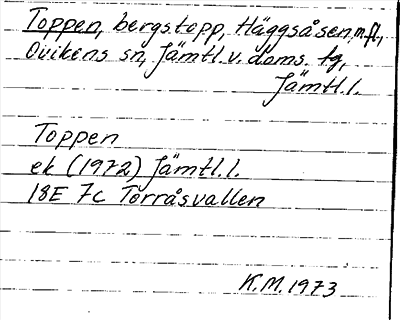 Toppen, bergstopp, Häggsåsen, m.fl.,
Ovikens sn, Jämtl. v. doms. tg,
Jämtl. l.
Toppen
ek (1972) Jämtl. l.
18E 7c Torråsvallen
K.M. 1973